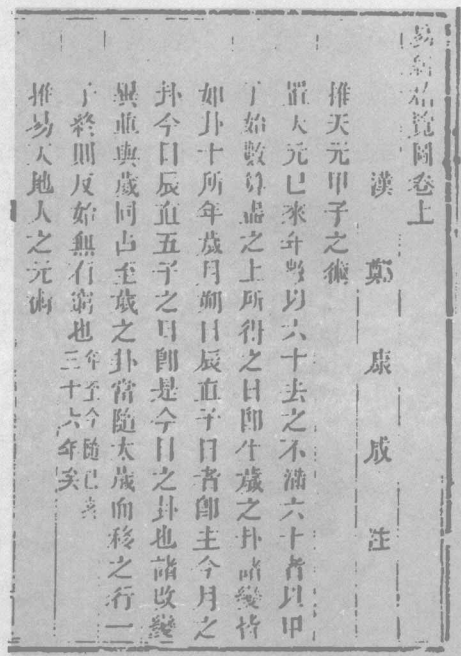 易緯稽覽圖卷上
漢鄭康成注
推天元甲子之術
置天元已來年數以六十去之不滿六十者以甲
子始數算盡之上所得之日即生歲之卦諸變皆
如卦十所年歲月朔日辰直子日者即主今月之
卦今日辰直五子之日即是今日之卦也諸改變
異並與歲同占至歲之卦當隨太歲而移之行一
子終則反始無有窮也年至今隨已亥三十六年矣
推易天地人之元術